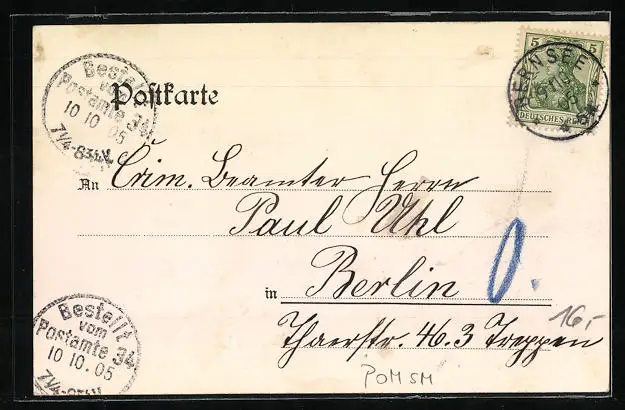 Bestellt
vom
Postamte 34
10 10.05
7¼-8¾V.
Postkarte
5 5
DEUTSCHES REICH
BERNSEE
An Crim. Beamter Herrn
Paul Uhl
in Berlin O.
Thaerstr. 46. 3 Treppen
16,-
POM SM
Bestellt
vom
Postamte 34
10 10.05
7¼-8¾V.